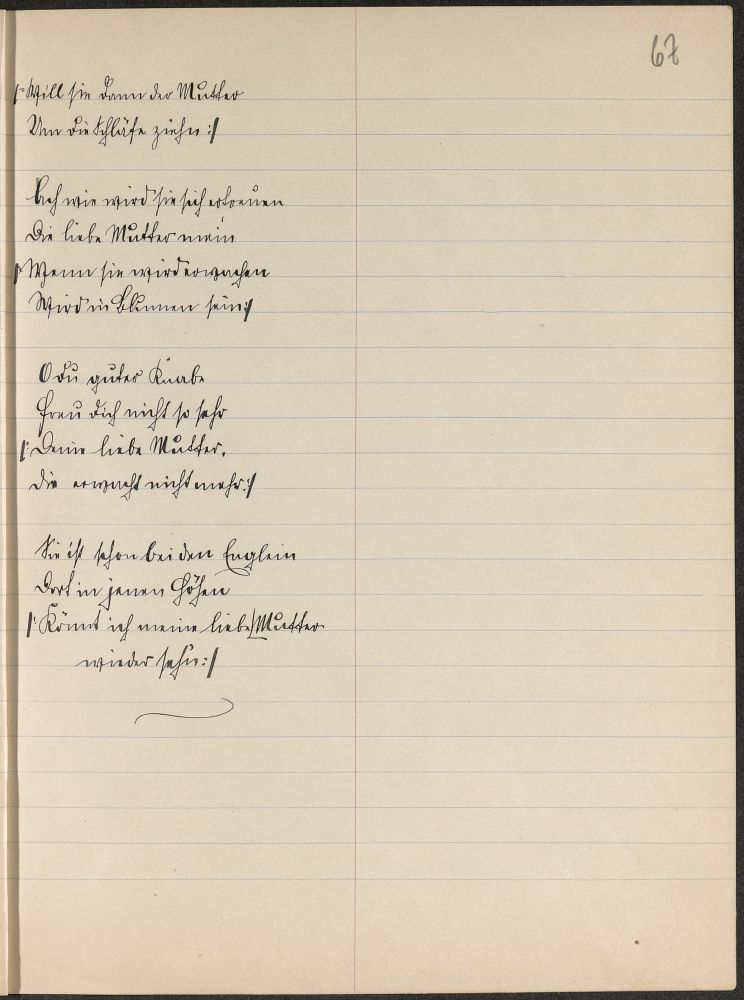 67
/: Will sie dann der Mutter
Um die Schläfe ziehn :/
Ach wie wird sie sich erfreuen
Die liebe Mutter mein
/: Wenn sie wird erwachen
Wird in Blumen sein :/
O du guter Knabe
Freu dich nicht so sehr
/: Deine liebe Mutter,
die erwacht nicht mehr :/
Sie ist schon bei den Englein
Dort in jenen Höhen
/: Könnt ich meine liebe Mutter
wieder sehn :/